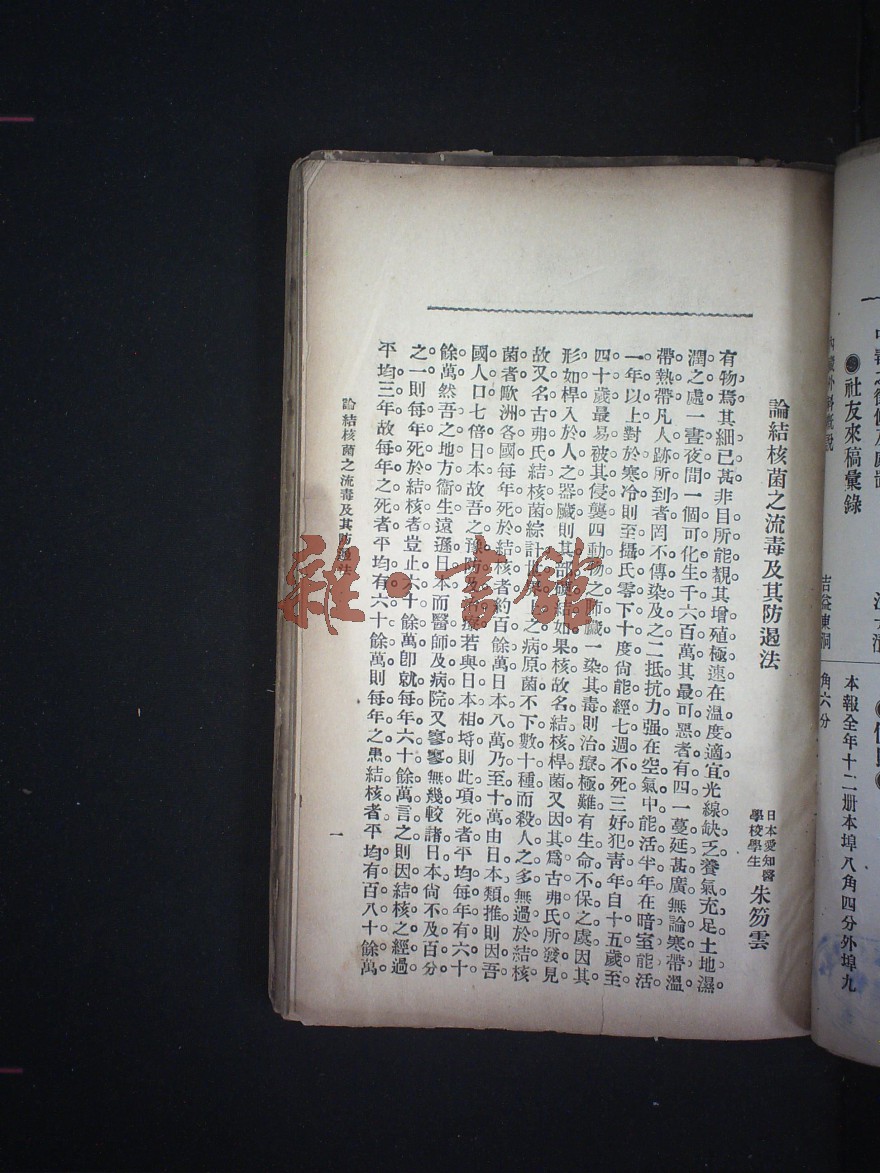 論結核菌之流毒及其防遏法
日本愛知醫
學校學生
朱笏雲
有物焉其細已甚非目所能覩其增殖極速在溫度適宜光線缺乏養氣充足土地濕
潤之處一晝夜間一個可化生千六百萬其最可惡者有四一蔓延甚廣無論寒帶溫
帶熱帶凡人跡所到者罔不傳染及之二抵抗力强在空氣中能活半年在暗室能活
一年以上對於寒冷則至攝氏零下十度尙能經七週不死三好犯青年自十五歲至
四十歲最易被其侵襲四動物之肺臟一染其毒則治療極難有生命不保之處因其
形如桿入於人之器臟則其部硬結如果核故名結核桿菌又因其爲古弗氏所發見
故又名古弗氏結核菌綜計世界上之病原菌不下數十種而殺人之多無過於結核
菌者歐洲各國每年死於結核者約百餘萬日本八萬乃至十萬由日本類推則因吾
國人口七倍日本故吾之豫防及治療若與日本相埒則此項死者平均每年有六十
餘萬然吾之地方衞生遠遜日本而醫師及病院又寥寥無幾較諸日本尙不及百分
之一則每年死於結核者豈止六十餘萬卽就每年六十餘萬言之則因結核之經過
平均三年故每年之死者平均有六十餘萬則每年之患結核者平均有百八十餘萬
論結核菌之流毒及其防遏法
一
雜·書館
●社友來稿彙錄
本報全年十二册本埠八角四分外埠九
角六分